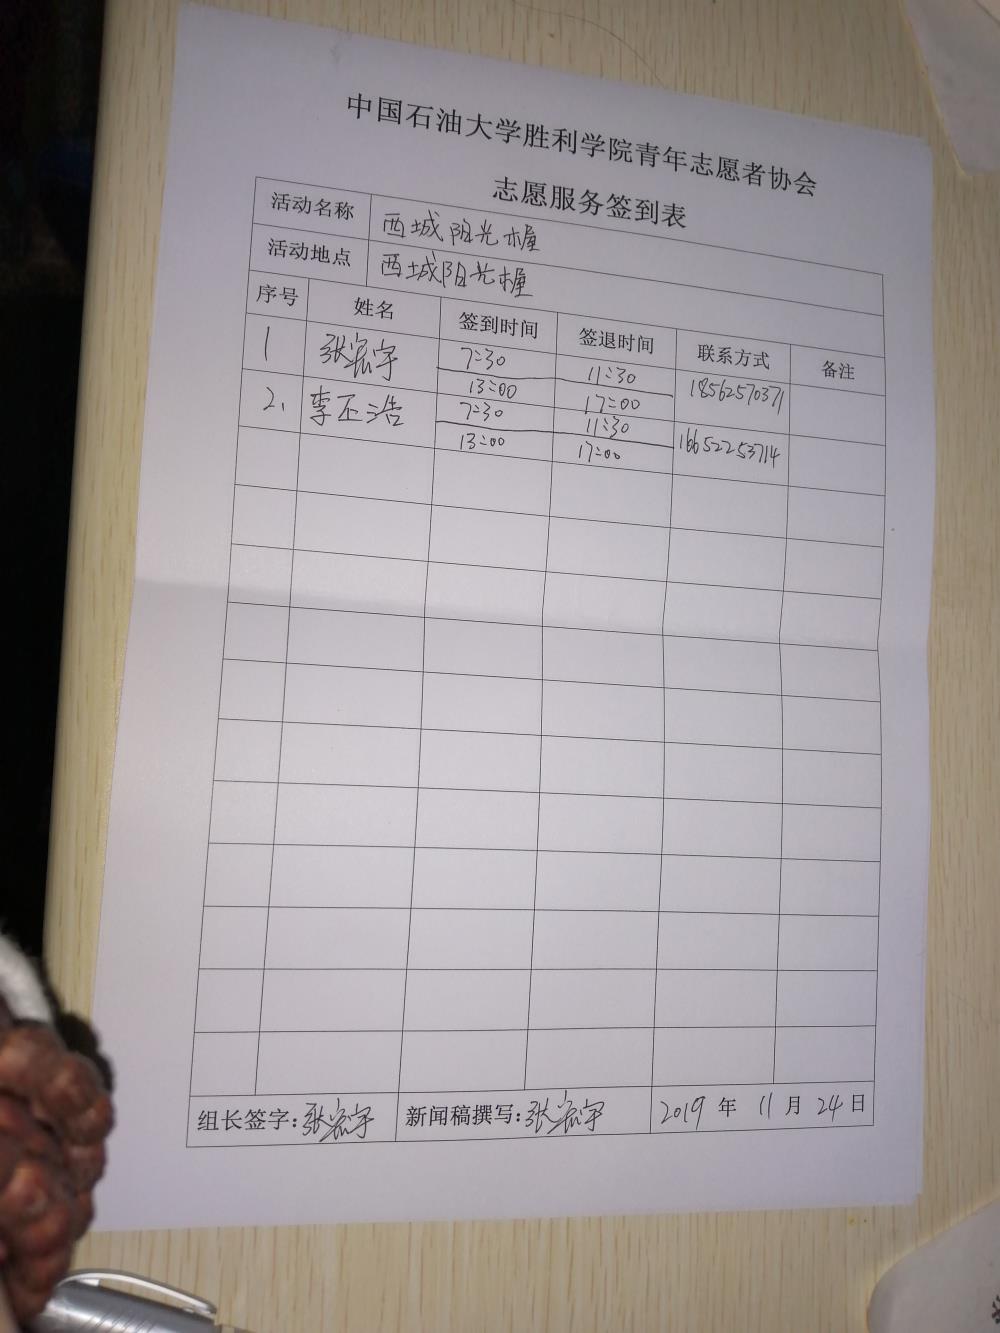 中国石油大学胜利学院青年志愿者协会
志愿服务签到表
活动名称 西城阳光木屋
活动地点 西城阳光木屋
序号 姓名 签到时间 签退时间 联系方式 备注
1 张宸宇 7:30 11:30 18562570371
13:00 17:00
2、 李丕浩 7:30 11:30 16652253714
13:00 17:00
组长签字:张宸宇 新闻稿撰写:张宸宇 2019 年 11 月 24 日